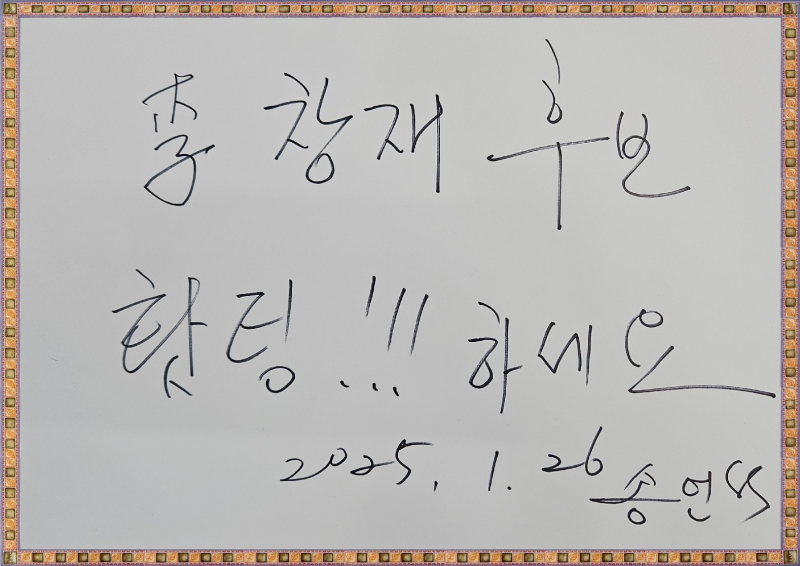 李 창재 후보
핫팅!!! 하세요
2025. 1. 26 송언